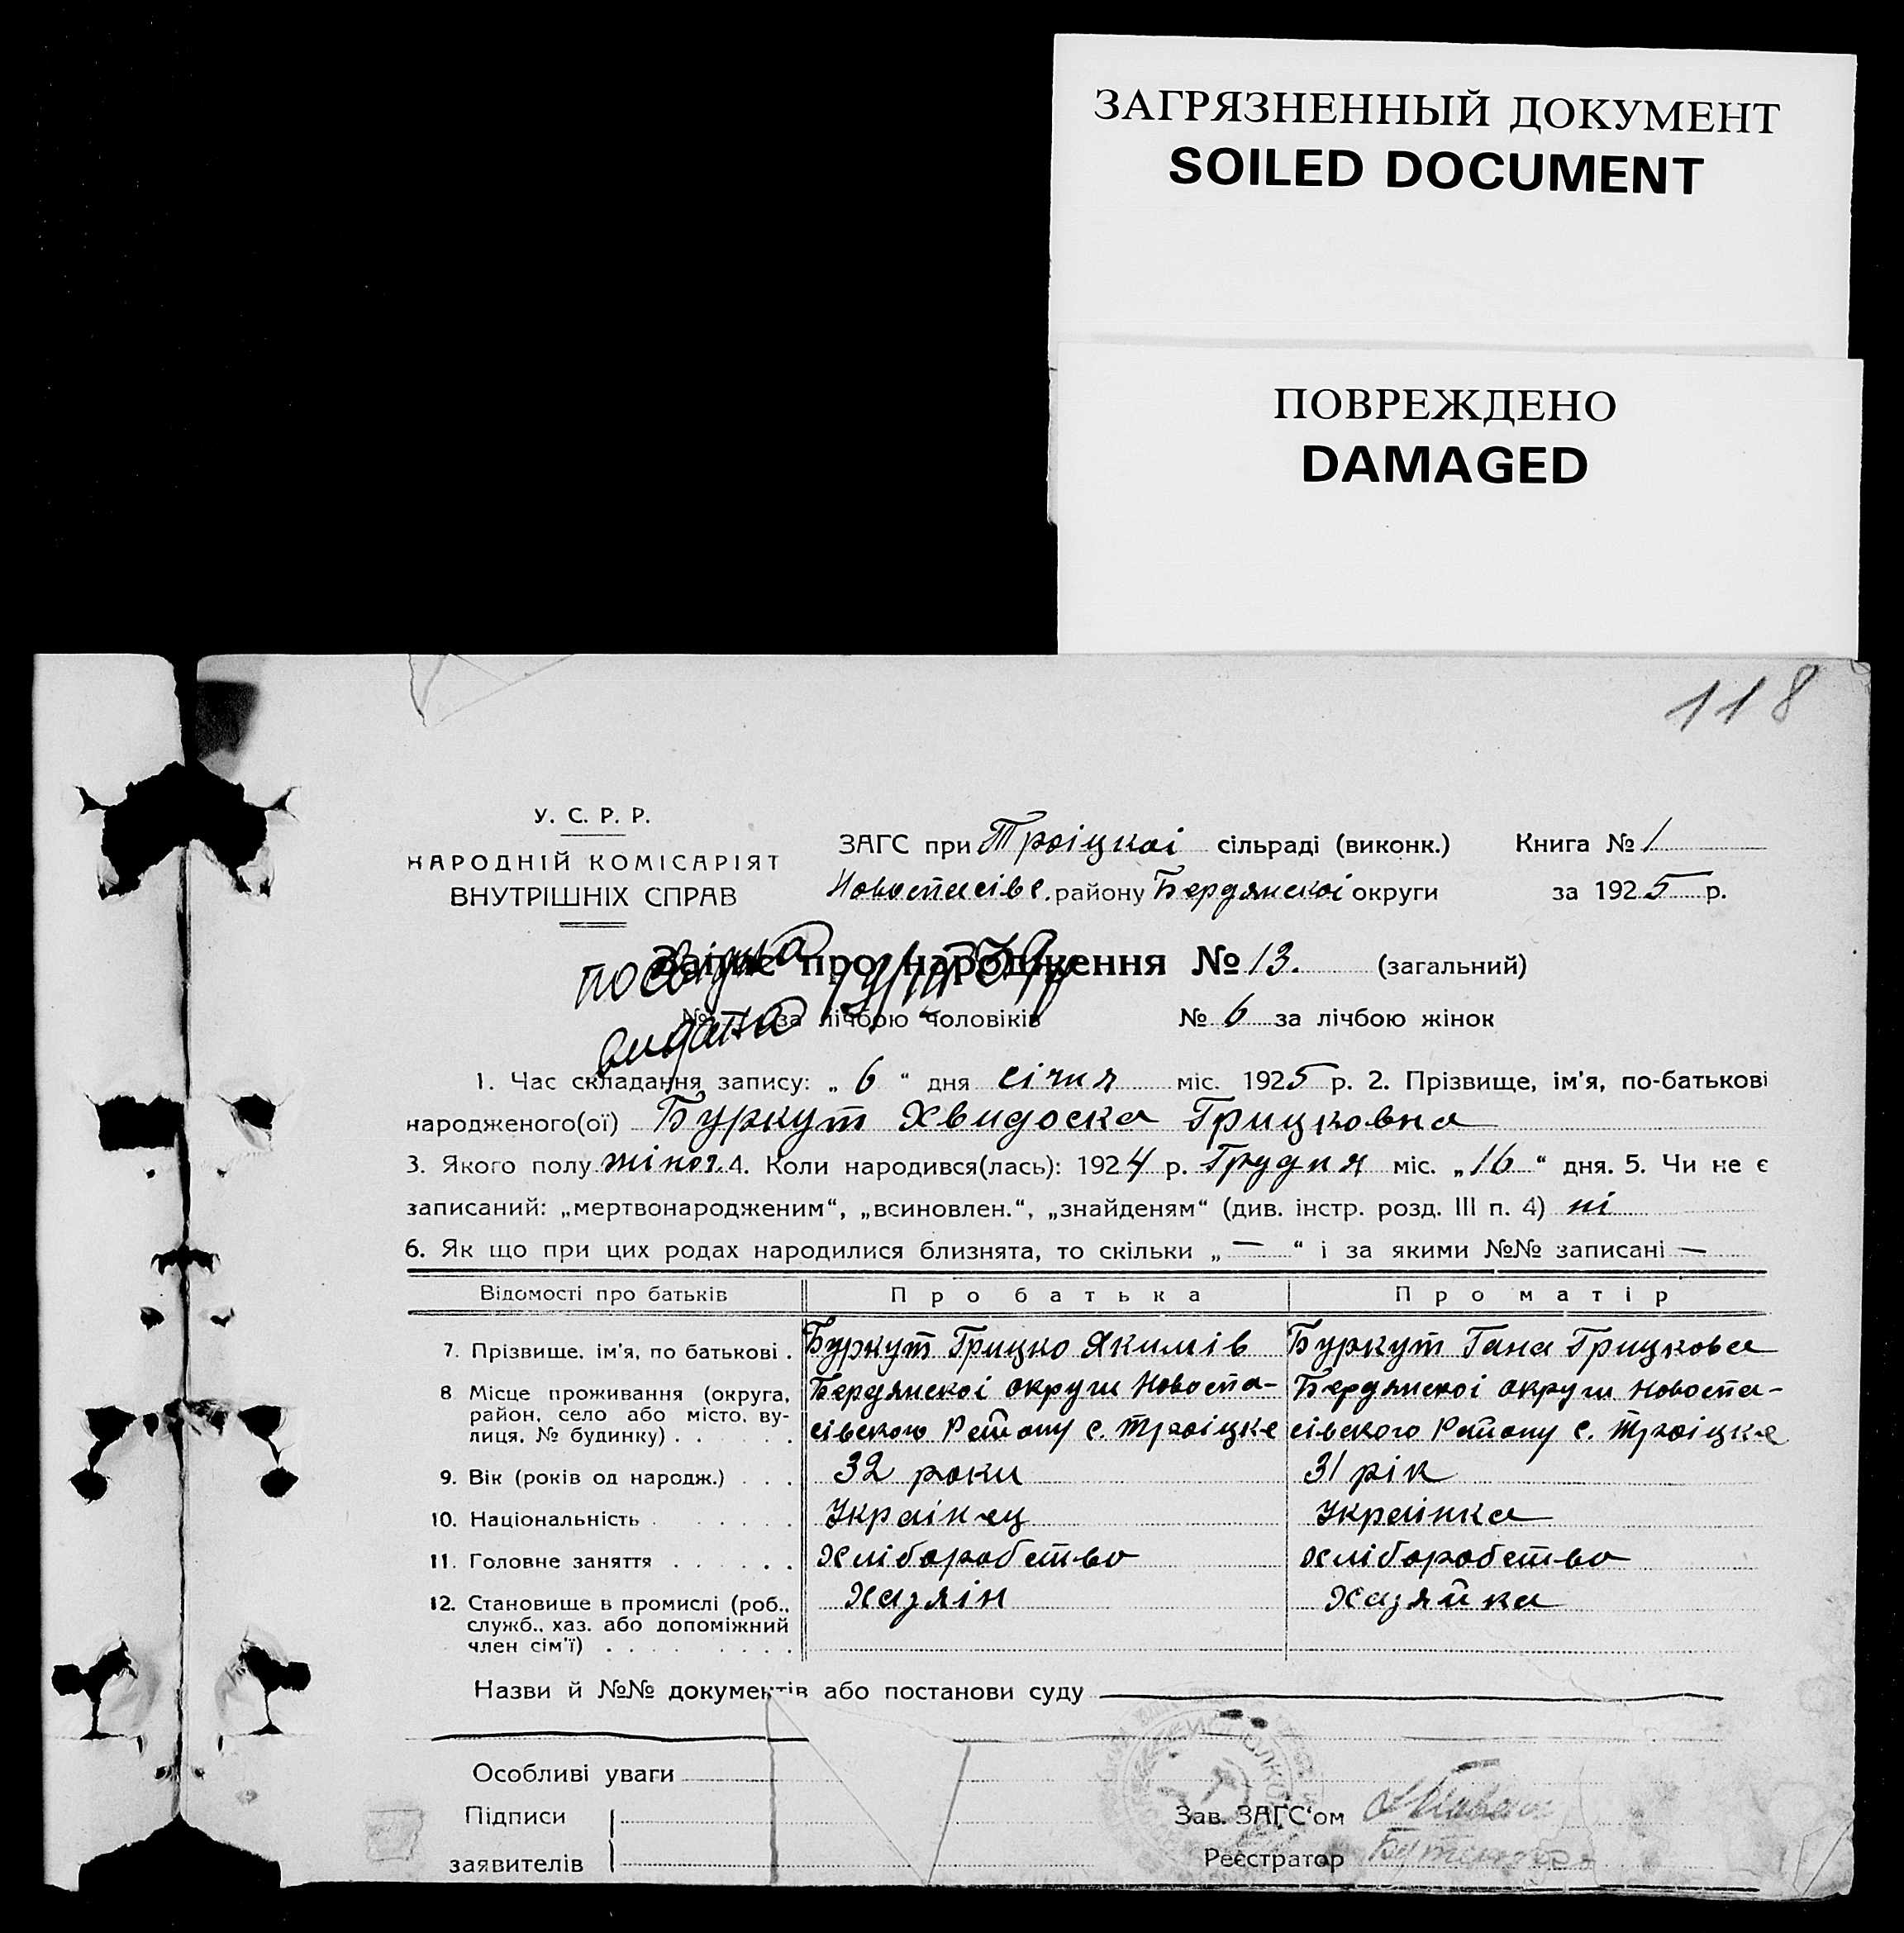 ЗАГРЯЗНЕННЫЙ ДОКУМЕНТ
SOILED DOCUMENT
ПОВРЕЖДЕНО
DAMAGED
118
У. С. Р. Р.
НАРОДНІЙ КОМІСАРІЯТ
ВНУТРІШНІХ СПРАВ
ЗАГС при Троіцкоі сільраді (виконк.) Книга № 1
Новоспасівс. району Бердянскоі округи за 1925 р.
Запис про народження № 13. (загальний)
посвідка
видана
№ за лічбою чоловіків № 6 за лічбою жінок
1. Час складання запису: „ 6 “ дня січня міс. 1925 р. 2. Прізвище, ім'я, по-батькові
народженого(ої) Буркут Хвидоска Грицковна
3. Якого полу жіноч. 4. Коли народився(лась): 1924 р. Грудня міс. „16“ дня. 5. Чи не є
записаний: „мертвонародженим“, „всиновлен.“, „знайденям“ (див. інстр. розд. III п. 4) ні
6. Як що при цих родах народилися близнята, то скільки „ — “ і за якими №№ записані —
Відомості про батьків Про батька Про матір
7. Прізвище, ім'я, по батькові . Буркут Грицко Якимів Буркут Гана Грицковa
8 Місце проживання (округа, Бердянскоі округи Новоспа- Бердянскоі округи Новоспа-
район, село або місто, ву-
лиця, № будинку) . . . . . сівского Району с. Троіцке сівского Району с. Троіцке
9. Вік (років од народж.) . . . 32 роки 31 рік
10. Національність . . . . . Украінец Украінка
11. Головне заняття . . . . . . Хліборобство хліборобство
12. Становище в промислі (роб., Хазяін Хазяйка
служб., хаз. або допоміжний
член сім'ї) . . . . . . .
Назви й №№ документів або постанови суду
Особливі уваги
Підписи
заявителів
Зав. ЗАГС‘ом
Реєстратор